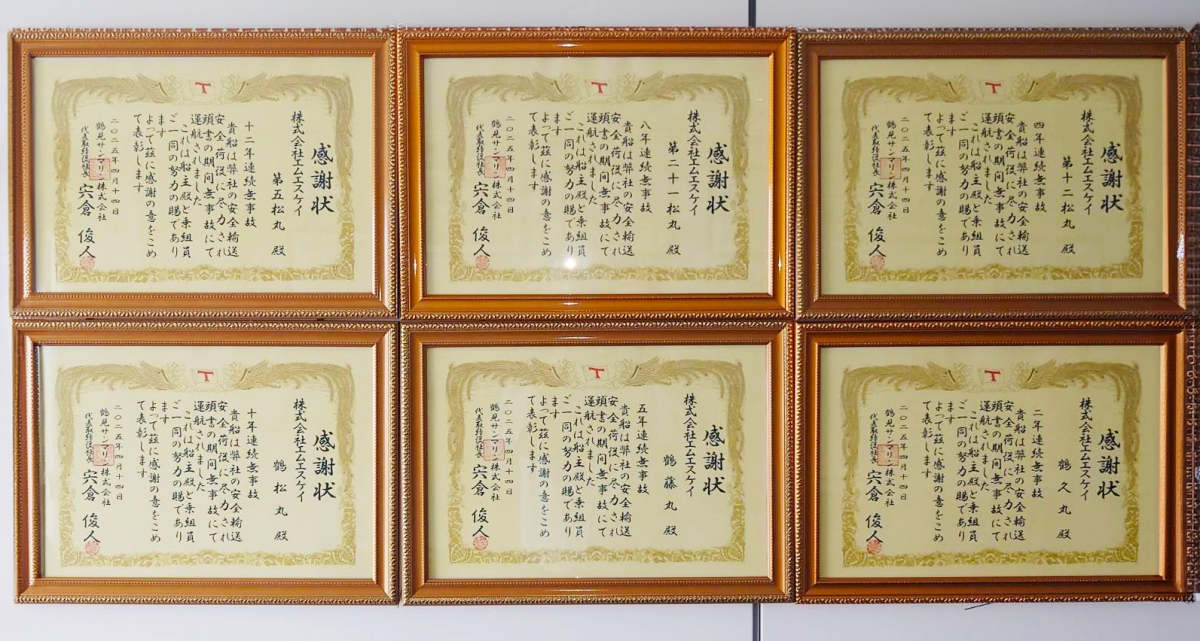 感謝状
株式会社エムエスケイ
第五松丸 殿
十二年連続無事故
貴船は弊社の安全輸送
安全荷役に尽力され
頭書の期間無事故にて
運航されました
これは船主殿と乗組員
ご一同の努力の賜であり
ます
よって茲に感謝の意をこめ
て表彰します
二〇二五年四月十四日
鶴見サンマリン株式会社
代表取締役社長 宍倉俊人
感謝状
株式会社エムエスケイ
第二十一松丸 殿
八年連続無事故
貴船は弊社の安全輸送
安全荷役に尽力され
頭書の期間無事故にて
運航されました
これは船主殿と乗組員
ご一同の努力の賜であり
ます
よって茲に感謝の意をこめ
て表彰します
二〇二五年四月十四日
鶴見サンマリン株式会社
代表取締役社長 宍倉俊人
感謝状
株式会社エムエスケイ
第十二松丸 殿
四年連続無事故
貴船は弊社の安全輸送
安全荷役に尽力され
頭書の期間無事故にて
運航されました
これは船主殿と乗組員
ご一同の努力の賜であり
ます
よって茲に感謝の意をこめ
て表彰します
二〇二五年四月十四日
鶴見サンマリン株式会社
代表取締役社長 宍倉俊人
感謝状
株式会社エムエスケイ
鶴松丸 殿
十年連続無事故
貴船は弊社の安全輸送
安全荷役に尽力され
頭書の期間無事故にて
運航されました
これは船主殿と乗組員
ご一同の努力の賜であり
ます
よって茲に感謝の意をこめ
て表彰します
二〇二五年四月十四日
鶴見サンマリン株式会社
代表取締役社長 宍倉俊人
感謝状
株式会社エムエスケイ
鶴藤丸 殿
五年連続無事故
貴船は弊社の安全輸送
安全荷役に尽力され
頭書の期間無事故にて
運航されました
これは船主殿と乗組員
ご一同の努力の賜であり
ます
よって茲に感謝の意をこめ
て表彰します
二〇二五年四月十四日
鶴見サンマリン株式会社
代表取締役社長 宍倉俊人
感謝状
株式会社エムエスケイ
鶴久丸 殿
二年連続無事故
貴船は弊社の安全輸送
安全荷役に尽力され
頭書の期間無事故にて
運航されました
これは船主殿と乗組員
ご一同の努力の賜であり
ます
よって茲に感謝の意をこめ
て表彰します
二〇二五年四月十四日
鶴見サンマリン株式会社
代表取締役社長 宍倉俊人